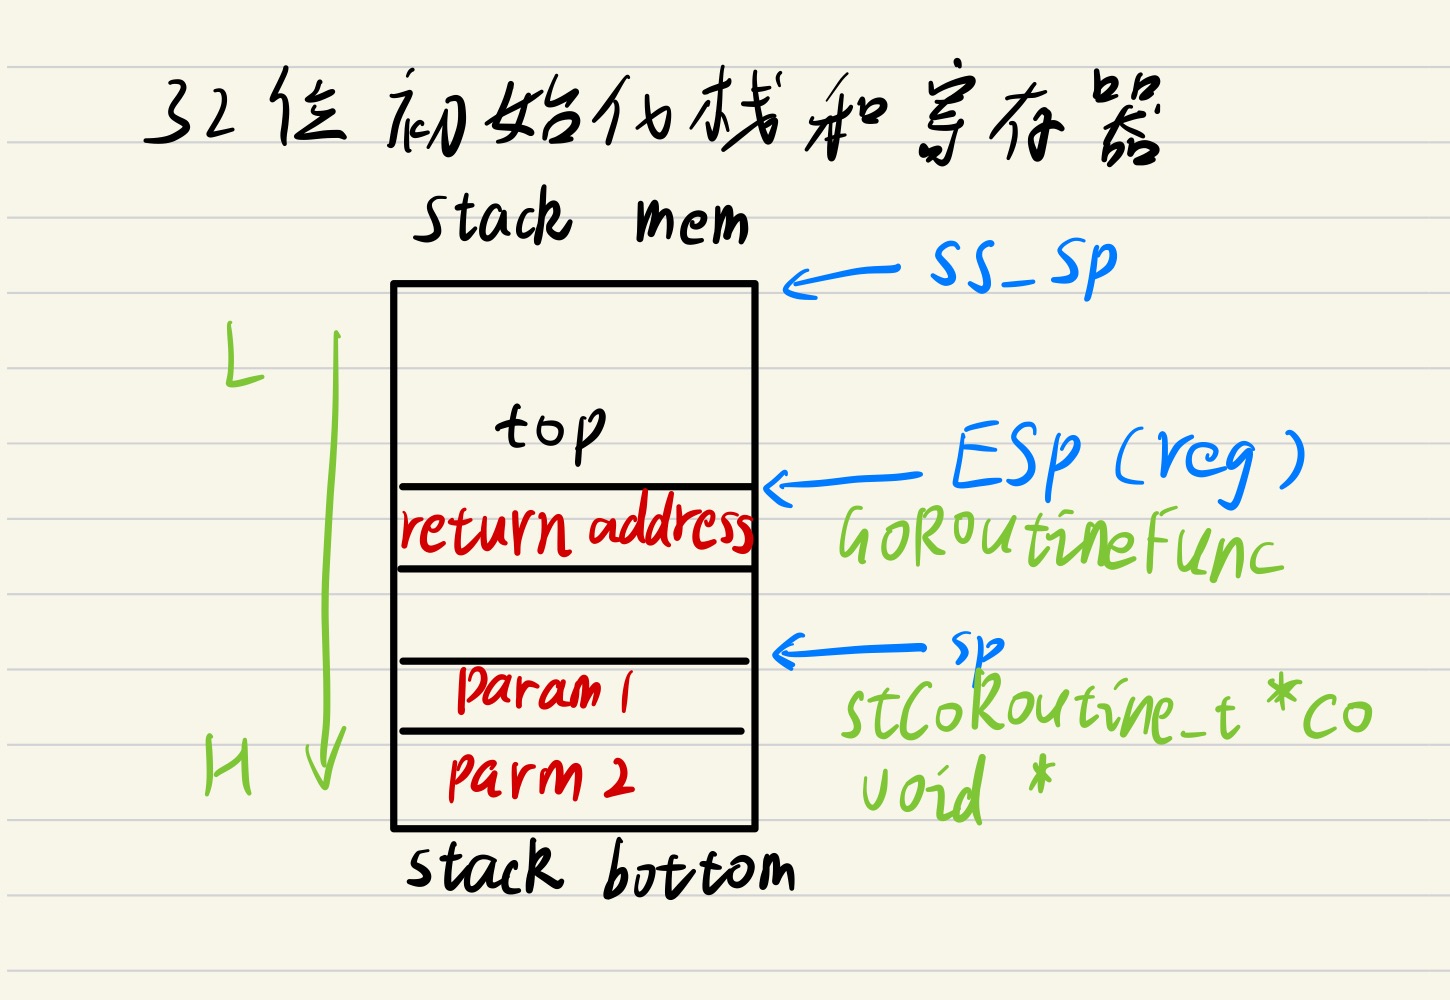 32位 初始化栈和寄存器
stack mem
ss_sp
L
top
ESp (reg)
return address
GoRoutineFunc
sp
param 1
stCoRoutine_t *co
H
parm 2
void *
stack bottom